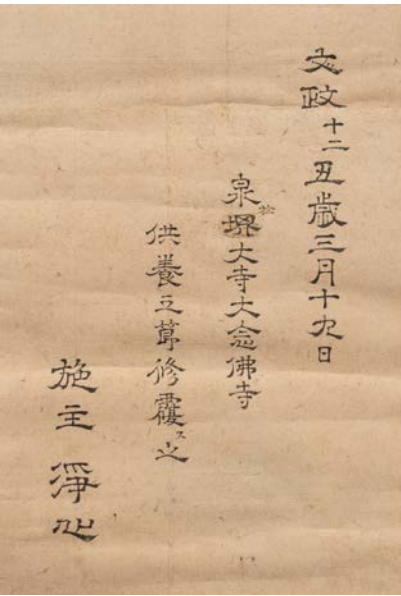 文政十二丑歳三月十九日
泉於堺大寺大念佛寺
供養之莭修覆ス之
施主 淨心